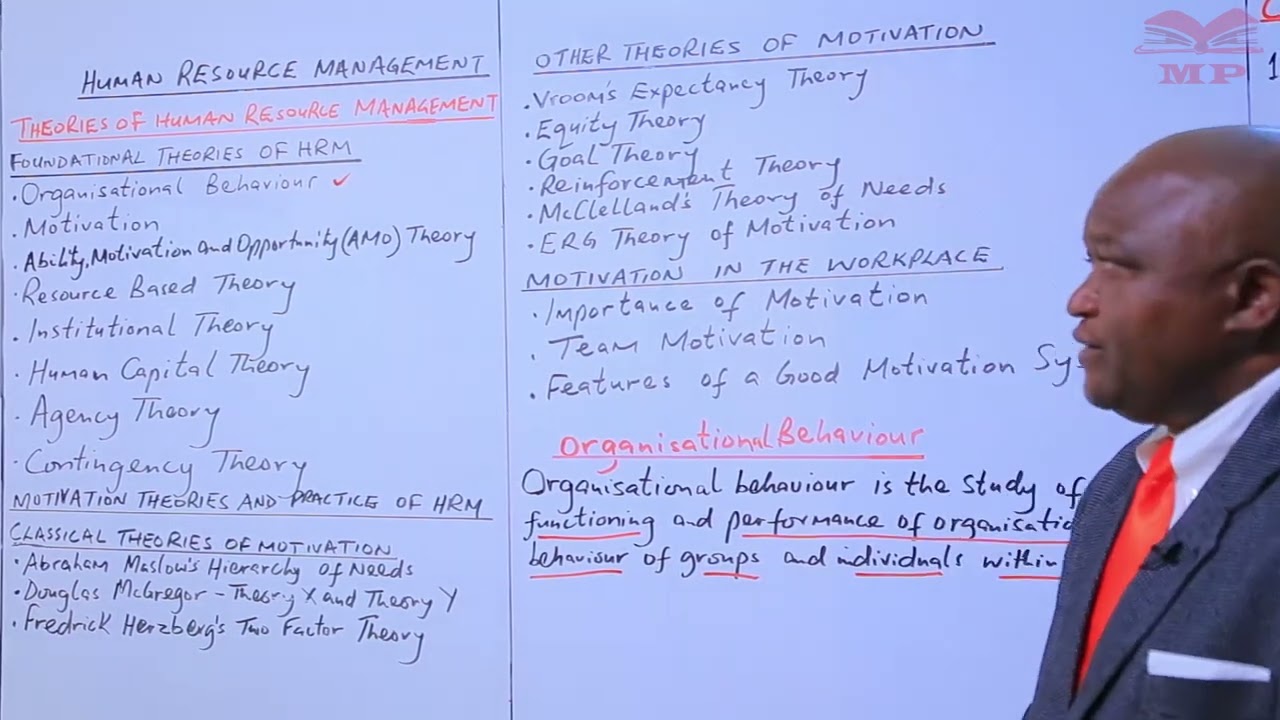 HUMAN RESOURCE MANAGEMENT
THEORIES OF HUMAN RESOURCE MANAGEMENT
FOUNDATIONAL THEORIES OF HRM
·Organisational Behaviour ✓
·Motivation
·Ability, Motivation and Opportunity (AMO) Theory
·Resource Based Theory
·Institutional Theory
·Human Capital Theory
·Agency Theory
·Contingency Theory
MOTIVATION THEORIES AND PRACTICE OF HRM
CLASSICAL THEORIES OF MOTIVATION
·Abraham Maslow's Hierarchy of Needs
·Douglas McGregor - Theory X and Theory Y
·Fredrick Herzberg's Two Factor Theory
OTHER THEORIES OF MOTIVATION
·Vroom's Expectancy Theory
·Equity Theory
·Goal Theory
·Reinforcement Theory
·McClelland's Theory of Needs
·ERG Theory of Motivation
MOTIVATION IN THE WORKPLACE
·Importance of Motivation
·Team Motivation
·Features of a Good Motivation Sy
Organisational Behaviour
Organisational behaviour is the study of
functioning and performance of organisatio
behaviour of groups and individuals within
MP
1